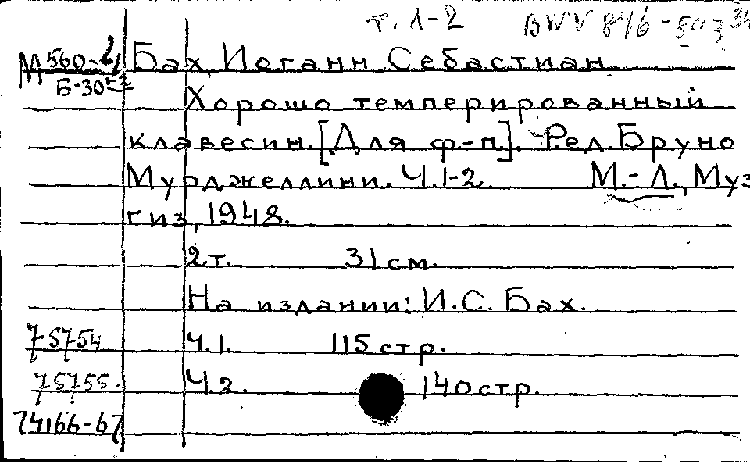 т. 1-2 BWV 846-893
М 560-2 Бах, Иоганн Себастиан
Б-30
Хорошо темперированный
клавесин. [Для ф-п]. Ред. Бруно
Мурджеллини. Ч.1-2. М.-Л., Муз
гиз, 1948.
2 т. 31 см.
На издании: И.С. Бах.
75754 Ч.1. 115 стр.
75755. Ч.2. 140 стр.
74166-67